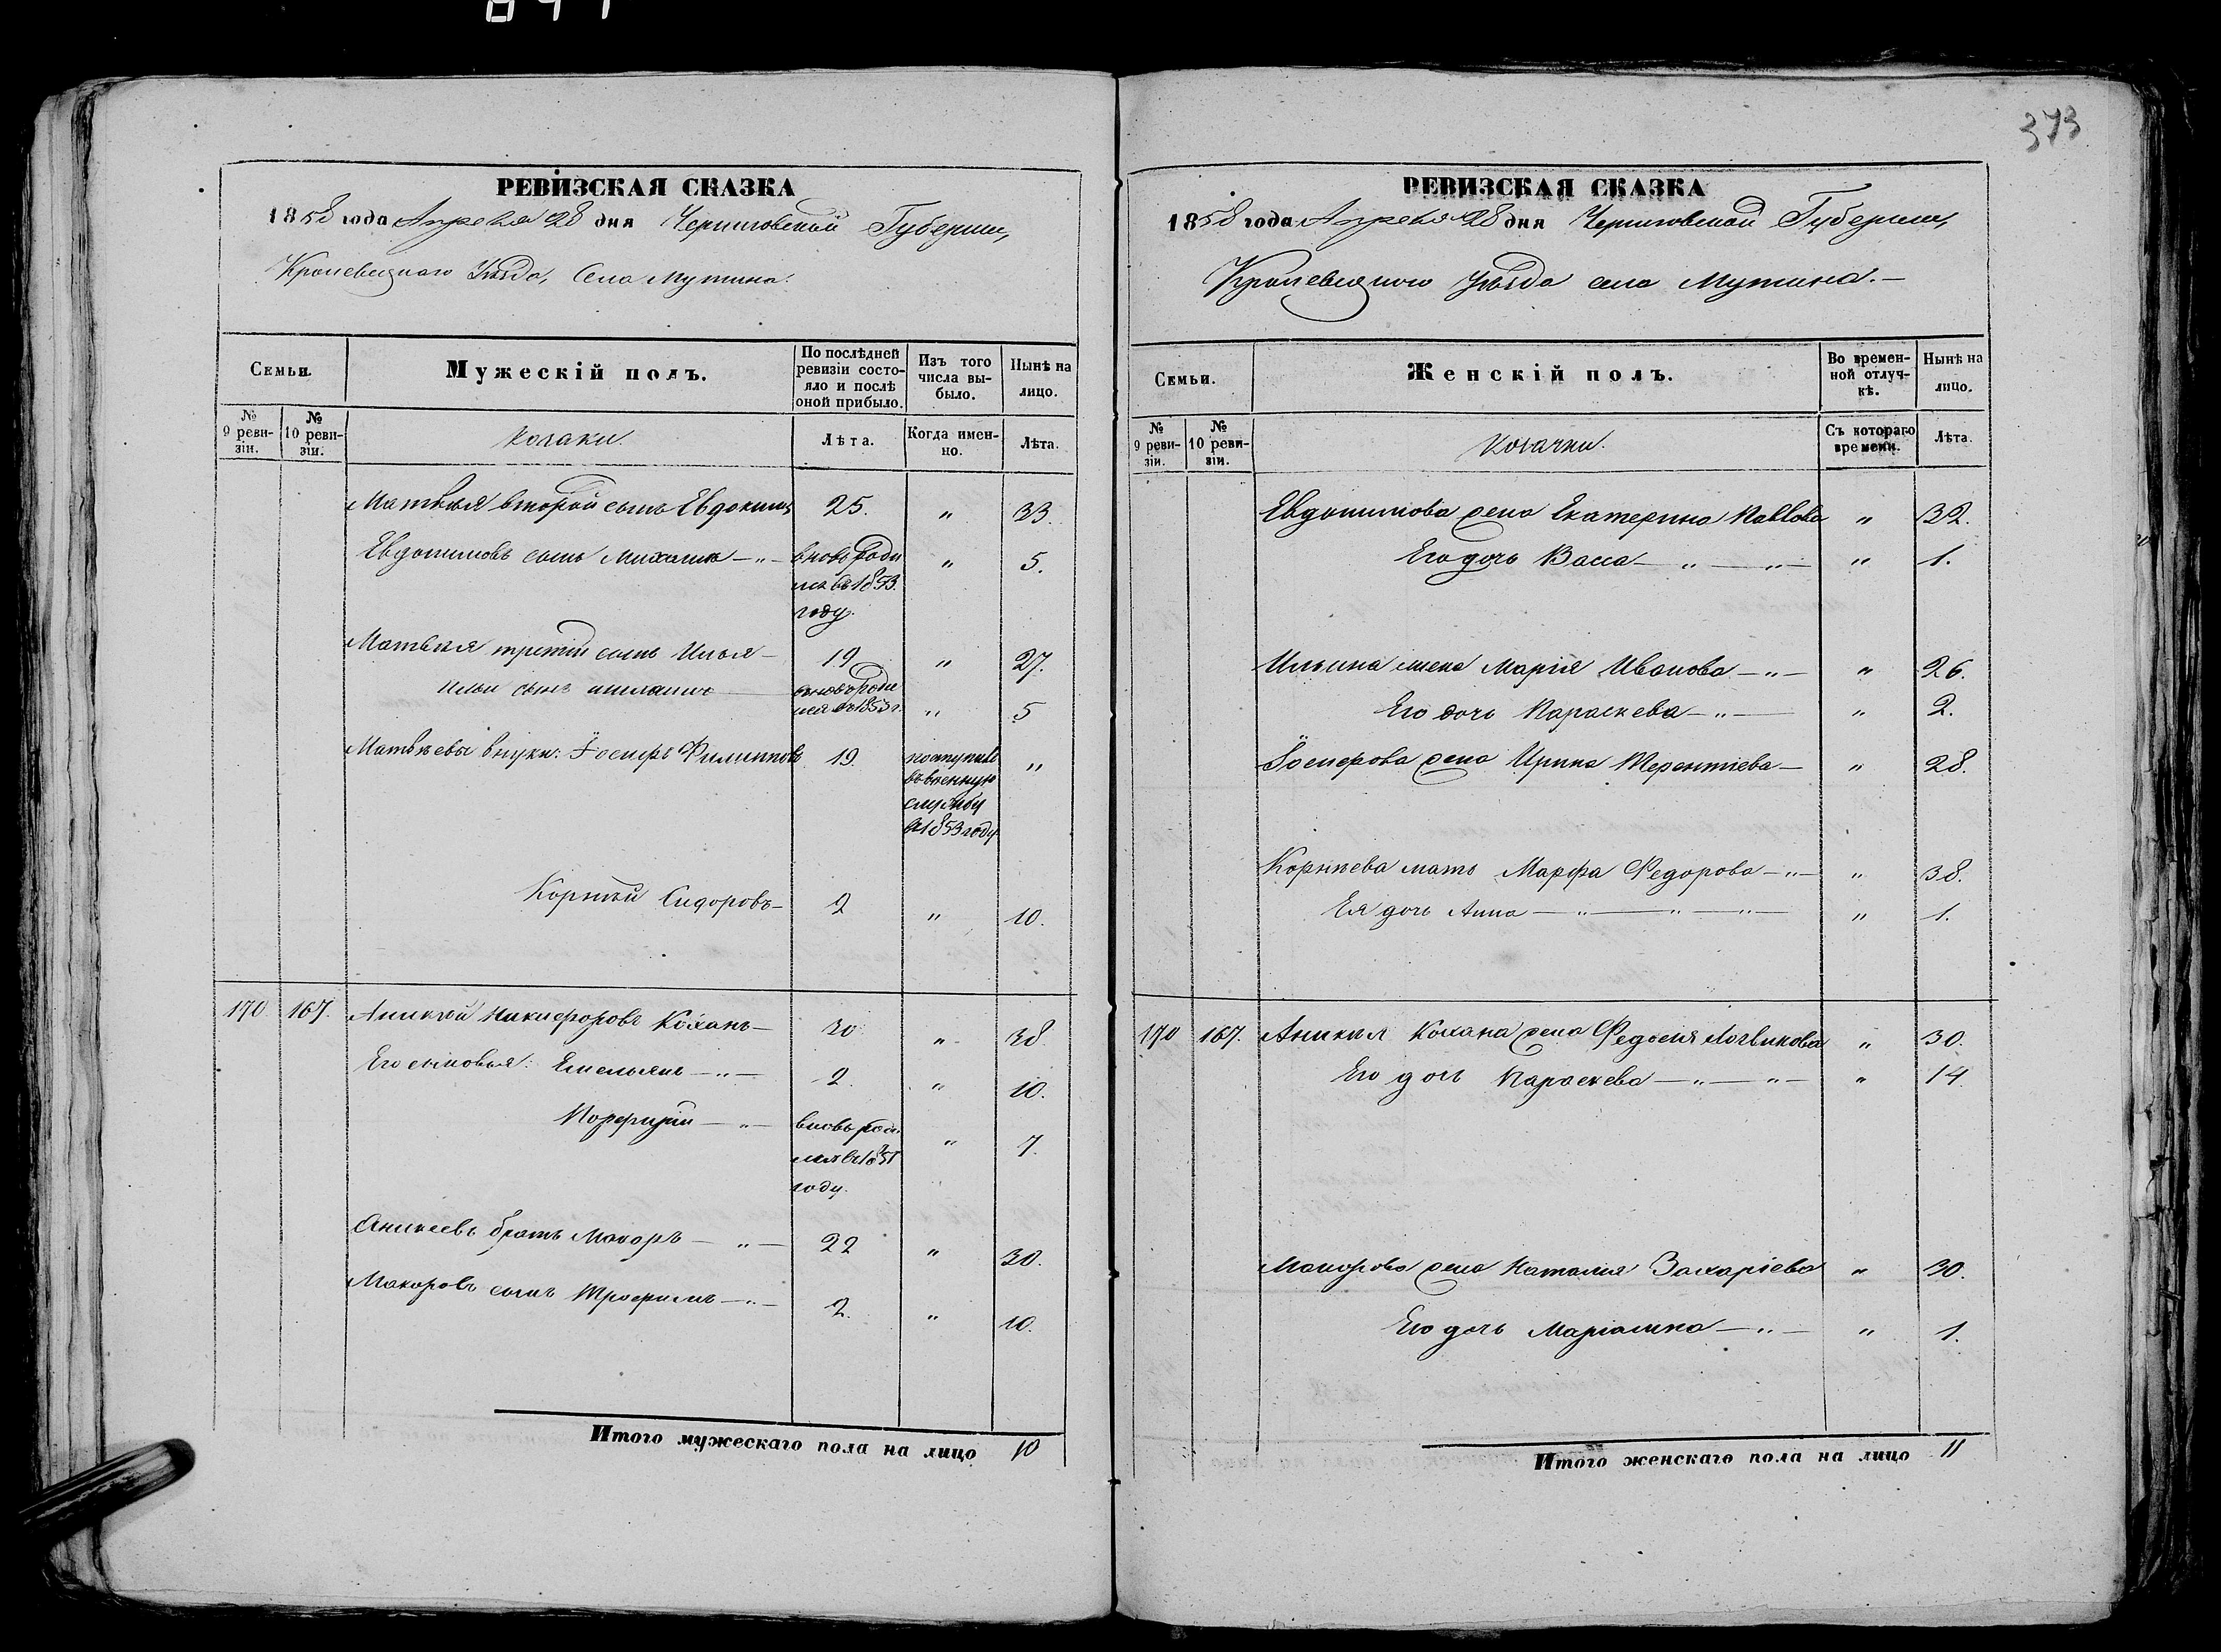 373
РЕВИЗСКАЯ СКАЗКА
1858 года Апреля 28 дня Черниговской Губернии,
Кролевецкаго Уѣзда, Села Мутина.
Семьи.
Мужескій полъ.
По послѣдней ревизіи состояло и послѣ оной прибыло.
Изъ того числа выбыло.
Нынѣ на лицо.
№ 9 ревизіи.
№ 10 ревизіи.
Козаки.
Лѣта.
Когда именно.
Лѣта.
Матвѣя второй сынъ Евдокимъ 25. " 33.
Евдокимовъ сынъ Михаилъ —"— вновь родился въ 1853 году. " 5.
Матвѣя третій сынъ Илья — 19 " 27.
Ильи сынъ вновь родился въ 1853 г. " 5
Матвѣевы внуки: Іосифъ Филипповъ 19. поступилъ въ военную службу въ 1853 году "
Корнѣй Сидоровъ — 2 " 10.
170 167. Аникѣй Никифоровъ Коханъ — 30 " 38.
Его сыновья: Емельянъ —"— 2. " 10.
Порфирій —"— вновь родился въ 1851 году. " 7.
Аникеевъ братъ Макаръ —"— 22 " 30.
Макаровъ сынъ Трофимъ —"— 2. " 10.
Итого мужескаго пола на лицо 10
РЕВИЗСКАЯ СКАЗКА
1858 года Апреля 28 дня Черниговской Губернии,
Кролевецкого Уѣзда села Мутина.—
Семьи.
Женскій полъ.
Во временной отлучкѣ.
Нынѣ на лицо.
№ 9 ревизіи.
№ 10 ревизіи.
Козачки.
Съ котораго времени.
Лѣта.
Евдокимова жена Екатерина Павлова " 32.
Его дочь Васса —"—"— " 1.
Ильина жена Марія Иванова —"— " 26.
Его дочь Параскева —"— " 2.
Іосифова жена Ирина Терентіева — " 28.
Корнѣева мать Марфа Федорова —"— " 38.
Ея дочь Анна —"—"—"— " 1.
170 167. Аникѣя Кохана жена Федосія Логвинова " 30.
Его дочь Параскева —"—"— " 14.
Макарова жена Наталія Захаріева " 30.
Его дочь Маріамна —"— " 1.
Итого женскаго пола на лицо 11